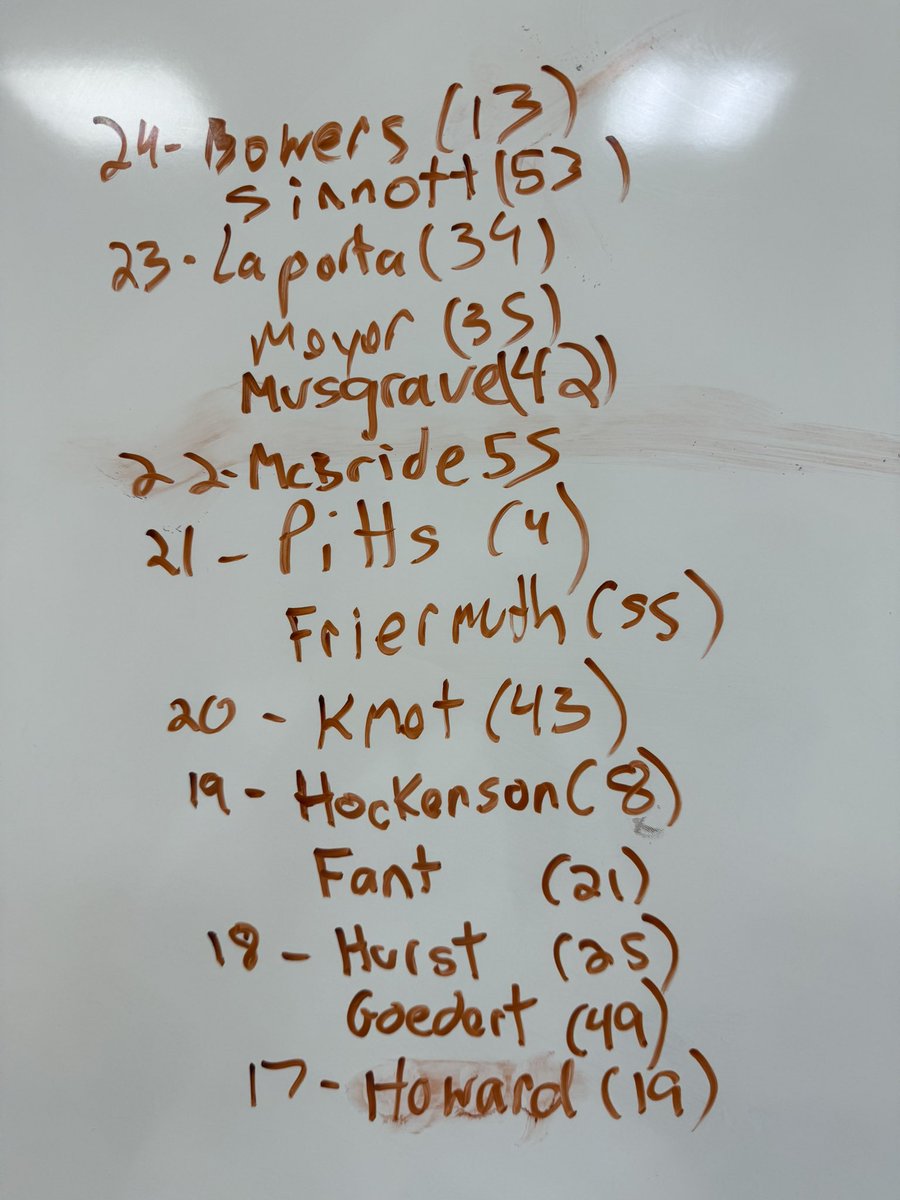 24- Bowers (13)
Sinnott (53)
23- Laporta (34)
Mayor (35)
Musgrave (42)
22- McBride 55
21- Pitts (4)
Friermuth (55)
20- Kmot (43)
19- Hockenson (8)
Fant (21)
18- Hurst (25)
Goedert (49)
17- Howard (19)